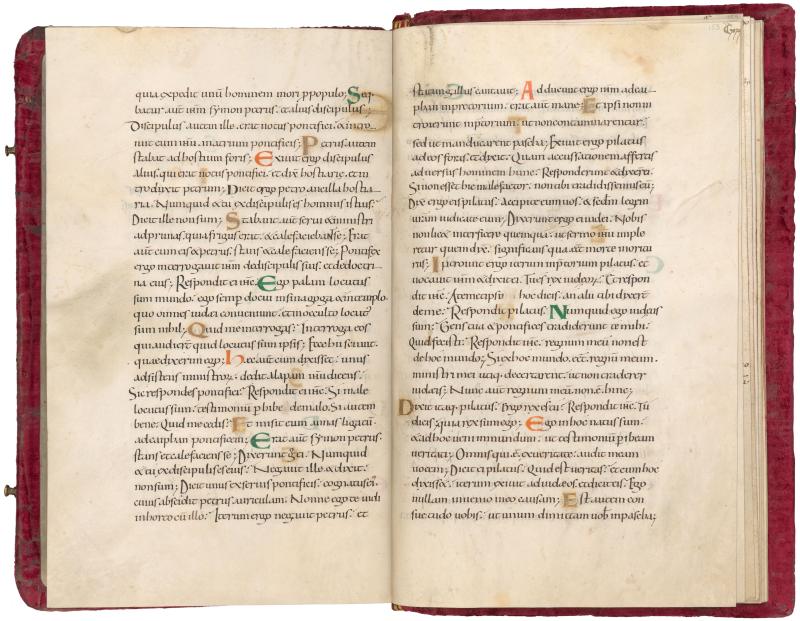 quia expedit unū hominem mori p populo; Seq
batur aut̄ ihm̄ symon petrus. et alius discipulus;
Discipulus autem ille. erat notus pontifici. et intro
iuit cum ihu. in atrium pontificis; Petrus autem
stabat ad hostium foris; Exiuit ergo discipulus
alius. qui erat notus pontifici. et dix̄ hostiarie. et in
troduxit petrum; Dicit ergo petro ancilla hostia
ria. Numquid et tu ex discipulis es hominis istius;
Dicit ille non sum; Stabant aut̄ serui et ministri
ad prunas. quia frigus erat. et calefaciebant se; Erat
aut̄ cum eis et petrus. stans et calefaciens se; Pontifex
ergo interrogauit ihm̄ de discipulis suis. et de doctri
na eius; Respondit ei ihc̄. Ego palam locutus
sum mundo. ego semp docui in sinagoga et in templo
quo omnes iudei conueniunt. et in occulto locutus
sum nihil; Quid me interrogas; Interroga eos
qui audiert̄ quid locutus sum ipsis; Ecce hii sciunt.
quae dixerim ego; Hec aut̄ cum dixisset. unus
adsistens ministrorum. dedit alapam ihu dicens.
Sic respondes pontifici; Respondit ei ihc̄. Si male
locutus sum. testimoniū phibe de malo. Si autem
bene. Quid me cedis; Et misit eum annas ligatū
ad caiphan pontificem; Erat aut̄ symon petrus.
stans et calefaciens se; Dixerunt g̊ ei. Numquid
et tu ex discipulis es eius. Negauit ille et dixit.
non sum; Dicit unus ex seruis pontificis. cognatus ei
cuius abscidit petrus auriculam. Nonne ego te uidi
in horto cū illo; Iterum ergo negauit petrus. et
statim gallus cantauit; Adducunt ergo ihm̄ ad cai
phan in pretorium. erat aut̄ mane; Et ipsi non in
troierunt in p̄torium. ut non contaminarentur.
sed ut manducarent pascha; Exiuit ergo pilatus
ad eos foras. et dixit. Quam accusationem affertis
aduersus hominem hunc. Responderunt et dixerunt ei.
Si non esset hic malefactor. non tibi tradidissemus eū;
Dix̄ ergo eis pilatus. Accipite eum uos. et sc̄dm legem
uram iudicate eum; Dixerunt ergo ei iudei. Nobis
non licet interficere quemquā. ut sermo ihu imple
retur quem dix̄. significans qua eēt morte moritu
rus; Introiuit ergo iterum in p̄torium pilatus. et
uocauit ihm̄ et dixit ei. Tu es rex iudeorum; Et respon
dit ihc̄. A temetipso hoc dicis. an alii tibi dixert̄
de me. Respondit pilatus. Numquid ego iudeus
sum. Gens tua et pontifices tradiderunt te mihi.
Quid fecisti. Respondit ihc̄. regnum meū non est
de hoc mundo; Si ex hoc mundo. eēt regnū meum.
ministri mei utiq; decertarent. ut non traderer
iudeis; Nunc aut̄ regnum meū non ē hinc;
Dicit itaq; pilatus. Ergo rex es tu. Respondit ihc̄. Tu
dicis quia rex sum ego; Ego in hoc natus sum.
et ad hoc ueni in mundum. ut testimoniū phibeam
ueritati; Omnis qui ē. ex ueritate. audit meam
uocem; Dicit ei pilatus. Quid est ueritas. et cum hoc
dixisset. iterum exiuit ad iudeos. et dicit eis. Ego
nullam inuenio in eo causam; Est autem con
suetudo uobis. ut unum dimittam uob̄ in pascha;